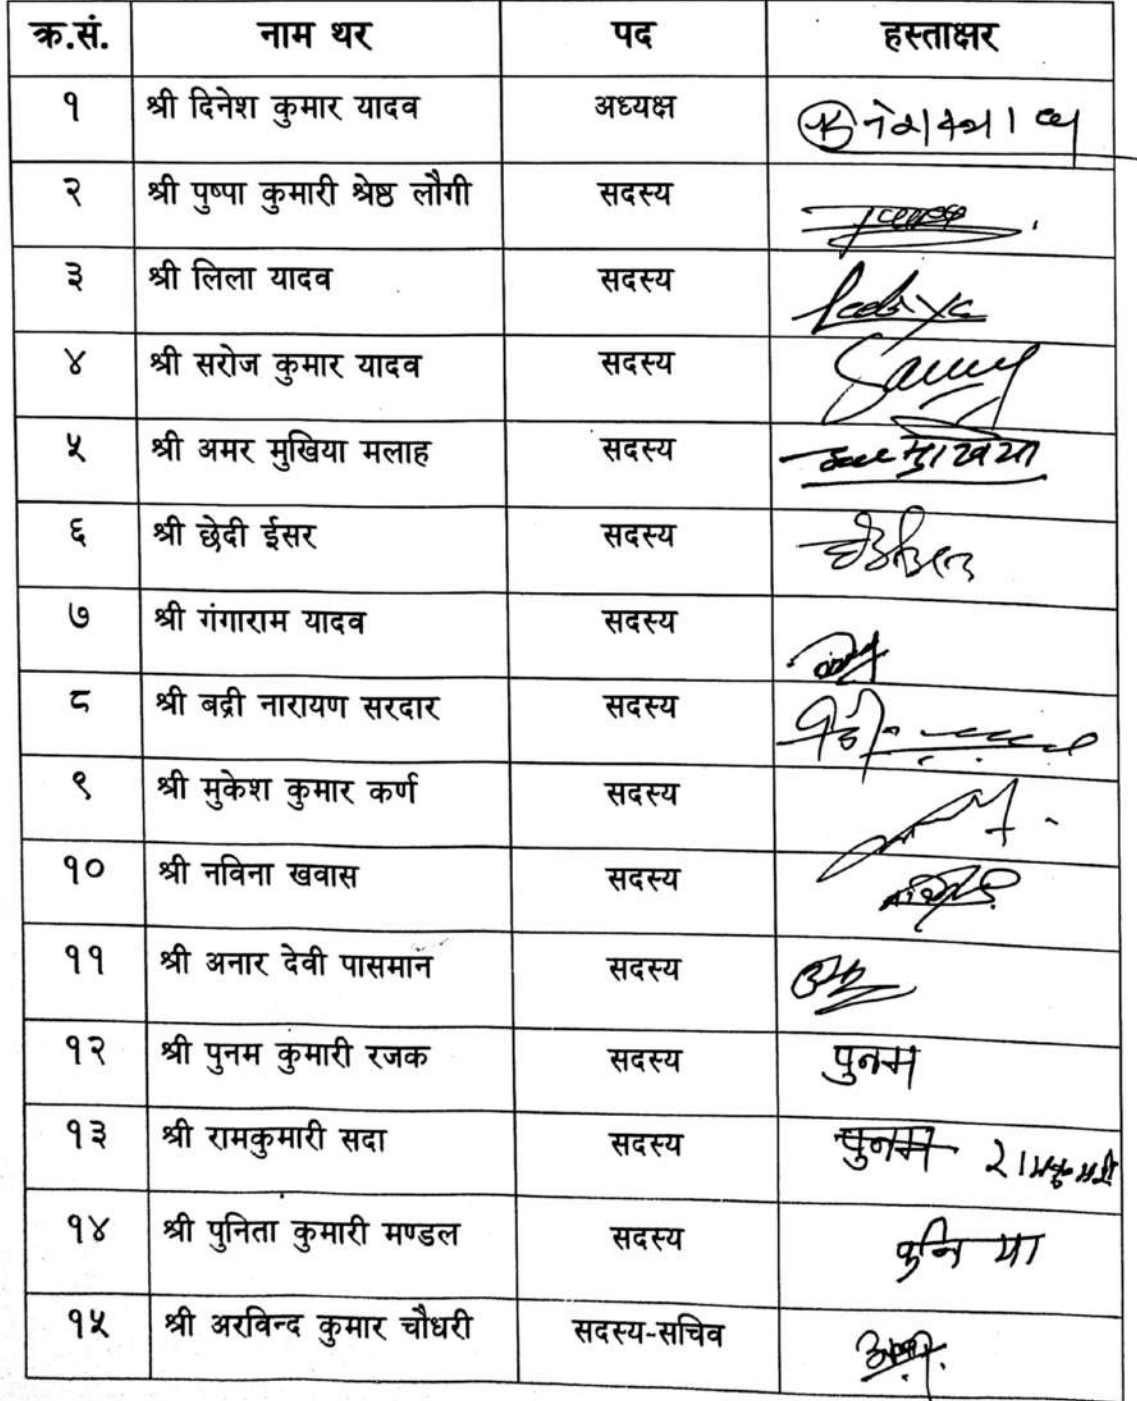 क्र.सं. नाम थर पद हस्ताक्षर
१ श्री दिनेश कुमार यादव अध्यक्ष
२ श्री पुष्पा कुमारी श्रेष्ठ लौगी सदस्य
३ श्री लिला यादव सदस्य
४ श्री सरोज कुमार यादव सदस्य
५ श्री अमर मुखिया मलाह सदस्य
६ श्री छेदी ईसर सदस्य
७ श्री गंगाराम यादव सदस्य
८ श्री बद्री नारायण सरदार सदस्य
९ श्री मुकेश कुमार कर्ण सदस्य
१० श्री नविना खवास सदस्य
११ श्री अनार देवी पासमान सदस्य
१२ श्री पुनम कुमारी रजक सदस्य पुनम
१३ श्री रामकुमारी सदा सदस्य पुनम रामकुमारी
१४ श्री पुनिता कुमारी मण्डल सदस्य
१५ श्री अरविन्द कुमार चौधरी सदस्य-सचिव